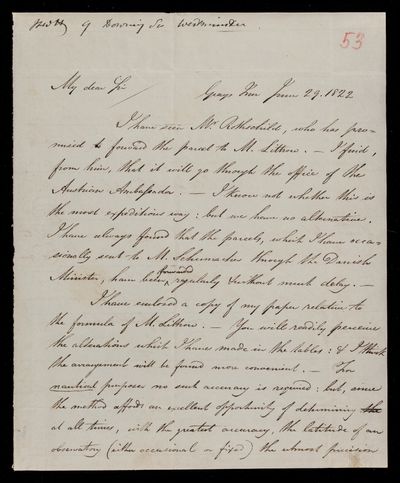 9 Downing St Westminster
53
My dear Sir
Grays Inn June 29. 1822
I have seen Mr. Rothschild, who has pro-
mised to forward the parcel to M. Littrow. — I find,
from him, that it will go through the office of the
Austrian Ambassador. — I know not whether this is
the most expeditious way: but we have no alternative.
I have always found that the parcels, which I have occa-
sionally sent to M. Schumacher through the Danish
Minister, have been forwarded regularly & without much delay. —
I have enclosed a copy of my paper relative to
the formula of M. Littrow. — You will readily perceive
the alterations which I have made in the tables: & I think
the arrangement will be found more convenient. — For
nautical purposes no such accuracy is required: but, since
the method affords an excellent opportunity of determining the
at all times, with the greatest accuracy, the latitude of an
observatory (either occasional or fixed) the utmost precision